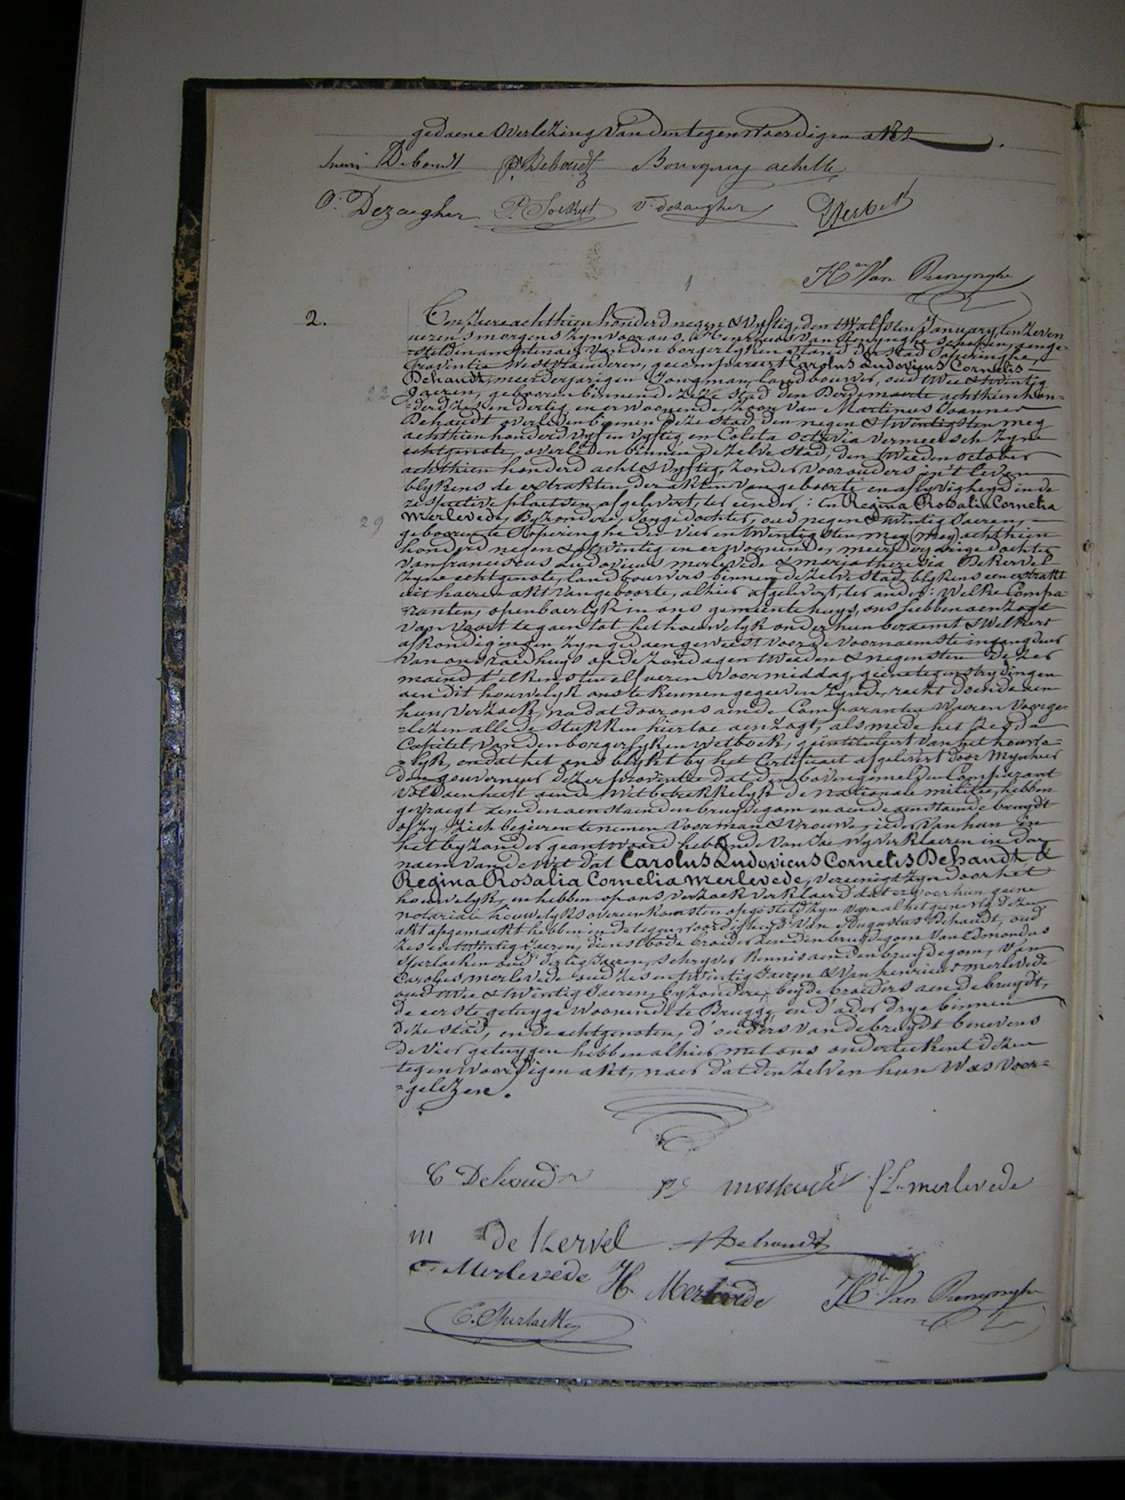 gedaene overlezing van den tegenwoordigen akt
henri Deboudt P. Deboudt Bouryruy achille
Dezaegher P. Sockeyt V. dezaegher
Hri Van Renynghe
2.
Ten jaere achthien honderd negen & Vyftig, den twalfsten January, ten zeeven
ueren 's morgens zyn voor ons, Henricus Van Renynghe schepen, aenge-
=stelden amptenaer van den borgerlyken stand der stad Poperinghe,
Provintie Westvlaenderen, gecompareert Carolus Ludovicus Cornelis
22 Dehandt, meerderjarigen Jongman, landbouwer, oud twee & twintig
Jaeren, geboren binnen deze stad den Maerte achthien hon-
=derd zes en dertig, en er woonende, zoon van Martinus Joannes
Dehandt overleden binnen deze stad, den negen & twintigsten mey
achthien honderd vyf en vyftig, en Coleta Octavia Vermeersch zyne
echtgenote, overleden binnen de zelve stad, den tweeden october
achthien honderd acht & vyftig, zonder voorouders in 't leven
blykens de extrakten der akten van geboorte en aflyvigheyd in de
respective plaetsen afgelevert, ter eender: en Regina Rosalia Cornelia
29 Merlevede, Byzondere, Jonge dochter, oud negen & twintig Jaeren,
geboren te Poperinghe den vier en twintigsten mey achthien
honderd negen & twintig en er woonende, meerderjarige dochter
van franciscus Ludovicus merlevede & maria theresia DeKervel
zyne echtgenote, landbouwers binnen de zelve stad, blykens een extrakt
uit haeren akt van geboorte, alhier afgelevert, ter ander: Welke Compa-
=ranten, openbaerlyk in ons gemeente huys, ons hebben aenzogt
van voort te gaen tot het houwelyk onder hun beraemt & welkers
afkondigingen zyn gedaen geweest voor de voornaemste ingang deur
van ons raedhuys op de zondagen tweeden & negensten dezer
maend t' elkens ten elf ueren voormiddag, geene tegenstrydingen
aen dit houwelyk ons te kennen gegeven zynde, recht doende aen
hun verzoek, na dat door ons aen de Comparanten waeren voorge-
=lezen alle de stukken hiertoe aenzogt, als mede het zesde
Capitel van den borgerlyken Wetboek, geintituleert van het houwe-
=lyk, en dat het ons blykt by het Certificaet afgelevert door Mynheer
den gouverneur dezer provintie dat den bovengemelden Comparant
voldaen heeft aen de Wet betrekkelyk de nationale militie, hebben
gevraegt aen den aenstaenden bruydegom en aen de aenstaende bruydt
of zy zich begeeren te nemen voor man & vrouw, ieder van hun in
het byzonder geantwoord hebbende van Ja wy verklaeren in den
naem van de Wet dat Carolus Ludovicus Cornelis Dehandt &
Regina Rosalia Cornelia Merlevede, vereenigt zyn door het
houwelyk, en hebben op ons verzoek verklaerd dat er voor hun geene
notariale houwelyks overeenkomsten opgesteld zyn van al het geene wy dezen
akt opgemaekt hebben in de tegenwoordigheyd van Augustus Dehandt, oud
zes en twintig Jaeren, dienstbode broeder aen den bruydegom, van Edmondus
oud dertig Jaeren, schryver kennis aen den bruydegom, van
Carolus merlevede oud zes en twintig Jaeren & van henricus merlevede
oud twee & twintig Jaeren, byzondere, beyde broeders aen de bruydt,
de eerste getuyge woonende te Brugge en d' ander drye binnen
deze stad, en de echtgenoten, d' ouders van de bruydt benevens
de vier getuygen hebben alhier met ons onderteekent dezen
tegenwoordigen akt, naer dat den zelven hun was voor=
=gelezen.
C Dehandt RC merlevede f. L. merlevede
m de Kervel A Dehandt
C. Merlevede H. Merlevede Hri Van Renynghe